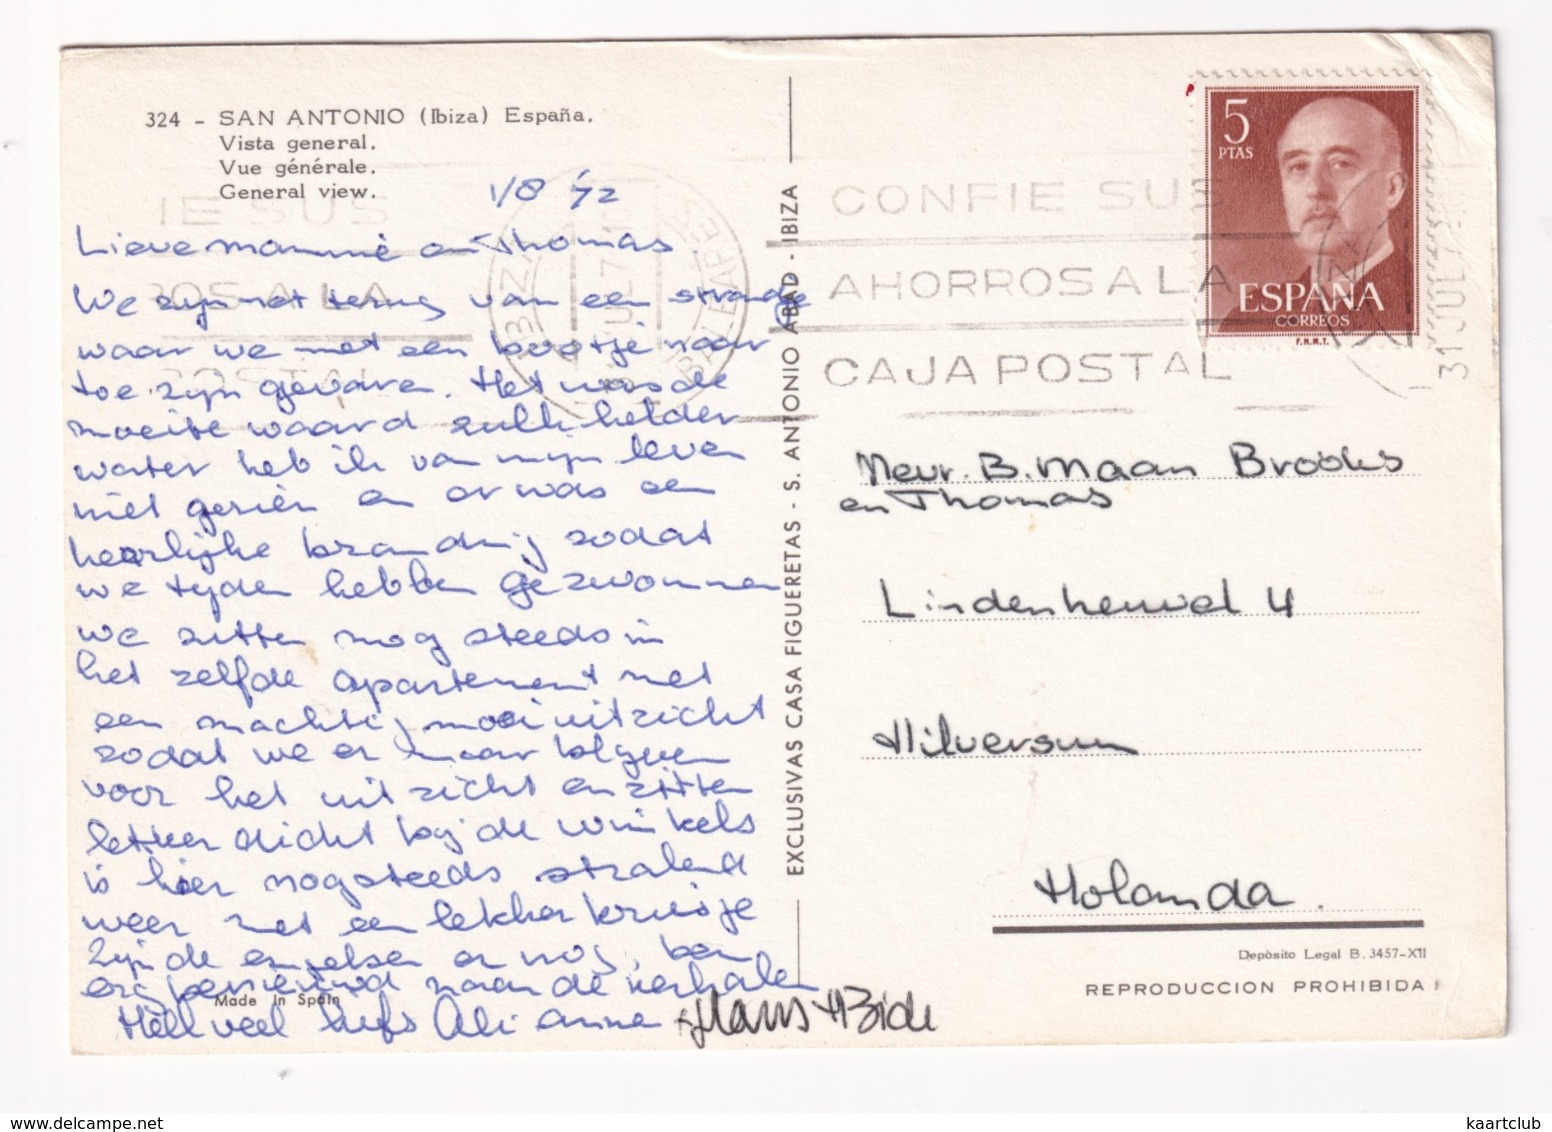 324 - SAN ANTONIO (Ibiza) España.
Vista general.
Vue générale.
General view.
1/8 '72
Lieve mammie en Thomas
We zijn net terug van een strandje
waar we met een bootje naar
toe zijn gevaren. Het was de
moeite waard zulk helder
water heb ik van mijn leven
niet gezien en er was een
heerlijke branding zodat
we tijden hebben gezwommen
we zitten nog steeds in
het zelfde apartement met
een machtig mooi uitzicht
zodat we er maar blijven
voor het uitzicht en zitten
lekker dicht bij de winkels
is hier nog steeds stralend
weer met een lekker briesje
zijn de engelsen er nog, ben
erg benieuwd naar de verhalen
Heel veel liefs Alianne
Hans
Made in Spain
EXCLUSIVAS CASA FIGUERETAS - S. ANTONIO ABAD - IBIZA
IE SUS
ROS A LA
POSTAL
IBIZA
BALEARES
CONFIE SUS
AHORROS A LA
CAJA POSTAL
31 JUL 7
5
PTAS
ESPAÑA
CORREOS
F.N.M.T.
Mevr. B. Maan Brooks
en Thomas
Lindenheuvel 4
Hilversum
Holanda.
Depósito Legal B. 3457-XII
REPRODUCCION PROHIBIDA
kaartclub